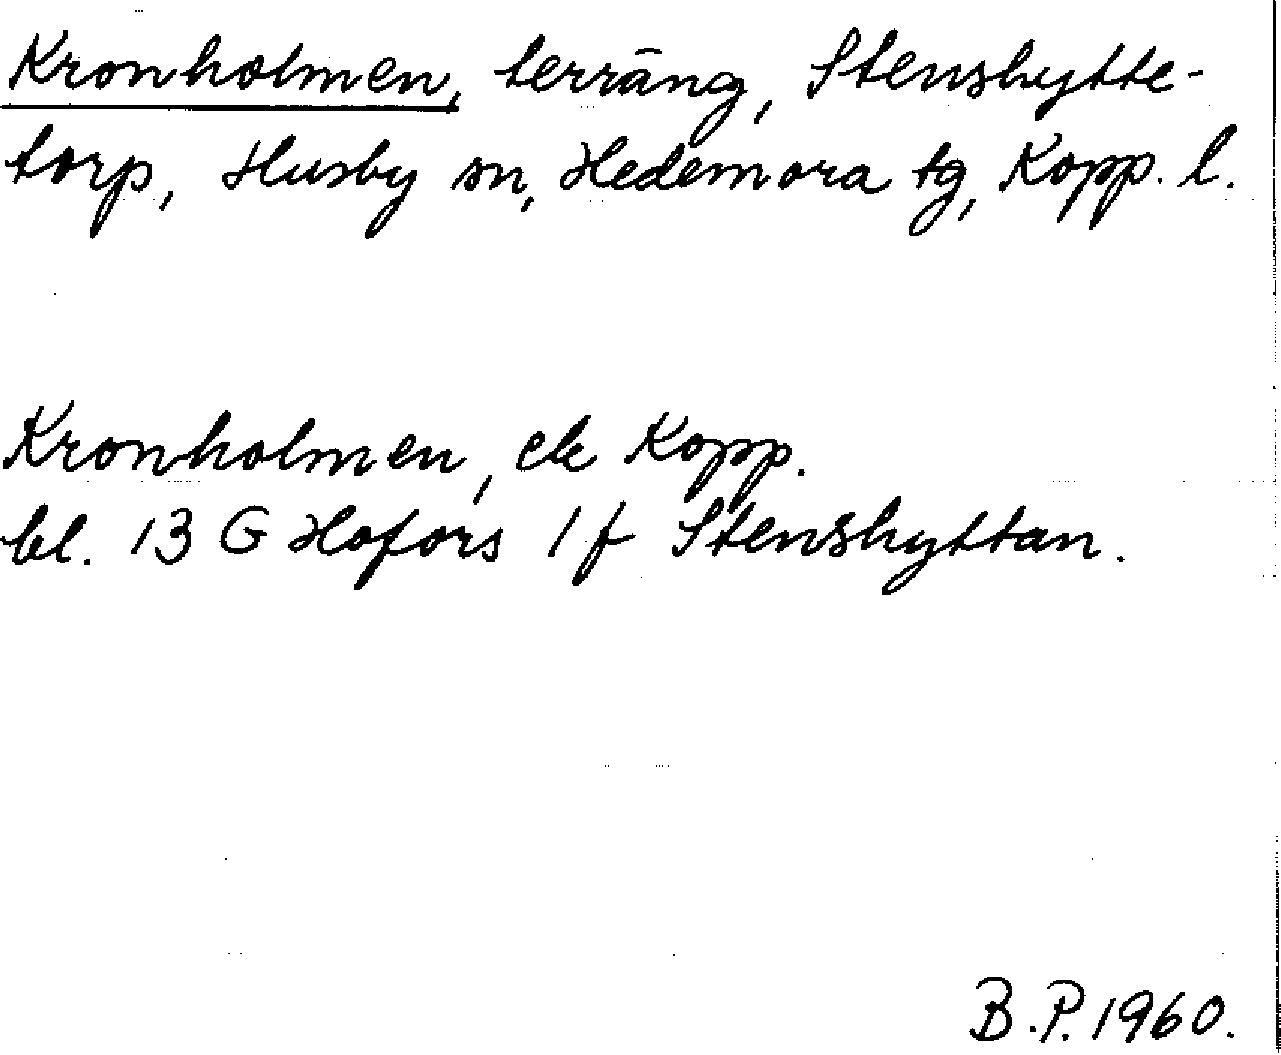 Kronholmen, terräng, Stenshytte-
torp, Husby sn, Hedemora tg, Kopp. l.
Kronholmen, ek Kopp.
bl. 13 G Hofors 1 f Stenshyttan.
B.P. 1960.